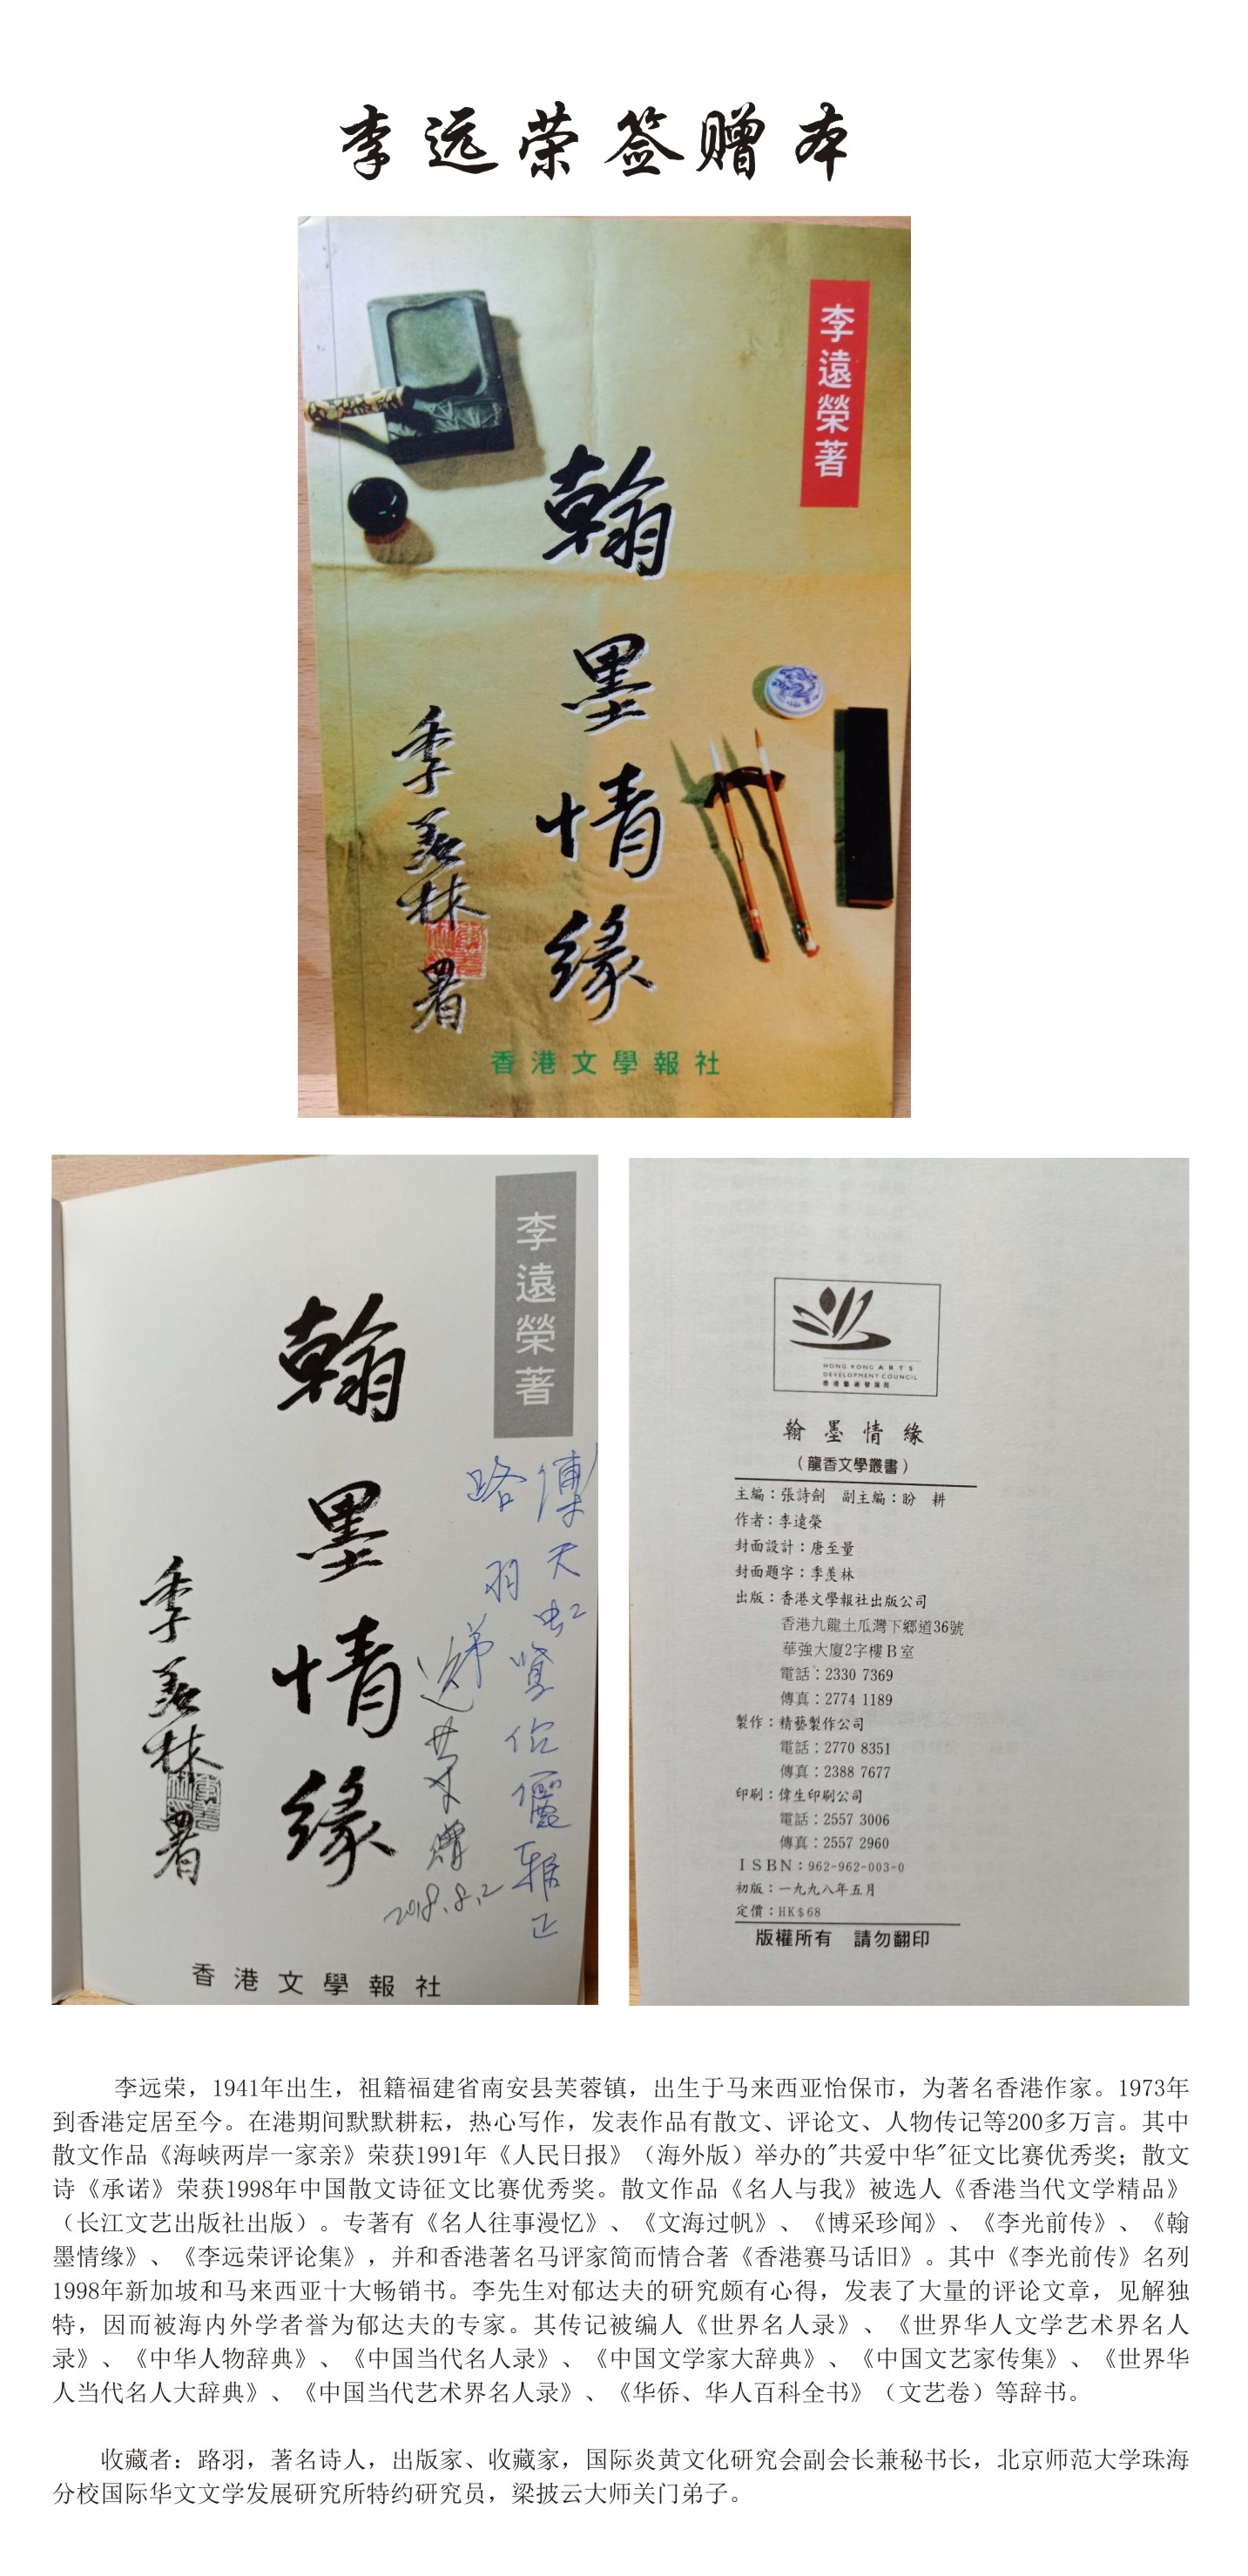 李远荣签赠本
李遠榮著
翰墨情緣
季羡林署
香港文學報社
李遠榮著
翰墨情緣
傅天虹
路羽
伉儷雅正
遠荣赠
2018.8.2
季羡林署
香港文學報社
HONG KONG ARTS
DEVELOPMENT COUNCIL
香港藝術發展局
翰墨情緣
（龍香文學叢書）
主編：張詩劍 副主編：盼 耕
作者：李遠榮
封面設計：唐至量
封面題字：季羨林
出版：香港文學報社出版公司
香港九龍土瓜灣下鄉道36號
華強大廈2字樓B室
電話：2330 7369
傳真：2774 1189
製作：精藝製作公司
電話：2770 8351
傳真：2388 7677
印刷：偉生印刷公司
電話：2557 3006
傳真：2557 2960
ISBN：962-962-003-0
初版：一九九八年五月
定價：HK$68
版權所有 請勿翻印
李远荣，1941年出生，祖籍福建省南安县芙蓉镇，出生于马来西亚怡保市，为著名香港作家。1973年
到香港定居至今。在港期间默默耕耘，热心写作，发表作品有散文、评论文、人物传记等200多万言。其中
散文作品《海峡两岸一家亲》荣获1991年《人民日报》（海外版）举办的"共爱中华"征文比赛优秀奖；散文
诗《承诺》荣获1998年中国散文诗征文比赛优秀奖。散文作品《名人与我》被选人《香港当代文学精品》
（长江文艺出版社出版）。专著有《名人往事漫忆》、《文海过帆》、《博采珍闻》、《李光前传》、《翰
墨情缘》、《李远荣评论集》，并和香港著名马评家简而情合著《香港赛马话旧》。其中《李光前传》名列
1998年新加坡和马来西亚十大畅销书。李先生对郁达夫的研究颇有心得，发表了大量的评论文章，见解独
特，因而被海内外学者誉为郁达夫的专家。其传记被编人《世界名人录》、《世界华人文学艺术界名人
录》、《中华人物辞典》、《中国当代名人录》、《中国文学家大辞典》、《中国文艺家传集》、《世界华
人当代名人大辞典》、《中国当代艺术界名人录》、《华侨、华人百科全书》（文艺卷）等辞书。
收藏者：路羽，著名诗人，出版家、收藏家，国际炎黄文化研究会副会长兼秘书长，北京师范大学珠海
分校国际华文文学发展研究所特约研究员，梁披云大师关门弟子。